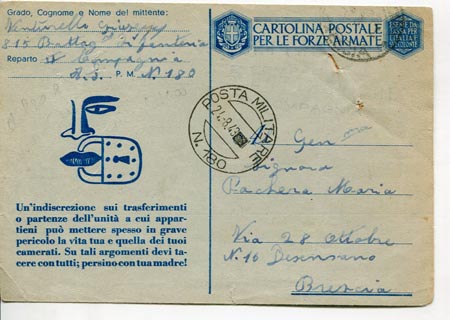 Grado, Cognome e Nome del mittente:
815 Battag. Fanteria
Reparto Compagnia
P. M. N. 180
CARTOLINA POSTALE
PER LE FORZE ARMATE
POSTA MILITARE
N. 180
Un'indiscrezione sui trasferimenti
o partenze dell'unità a cui appar-
tieni può mettere spesso in grave
pericolo la vita tua e quella dei tuoi
camerati. Su tali argomenti devi ta-
cere con tutti; persino con tua madre!
Signora
Pachera Maria
Via 28 Ottobre
N. 10 Desenzano
Brescia